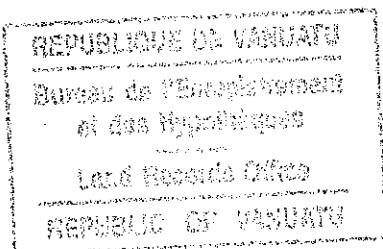 REPUBLIQUE DE VANUATU
Bureau de l'Enregistrement
et des Hypothèques
Land Records Office
REPUBLIC OF VANUATU